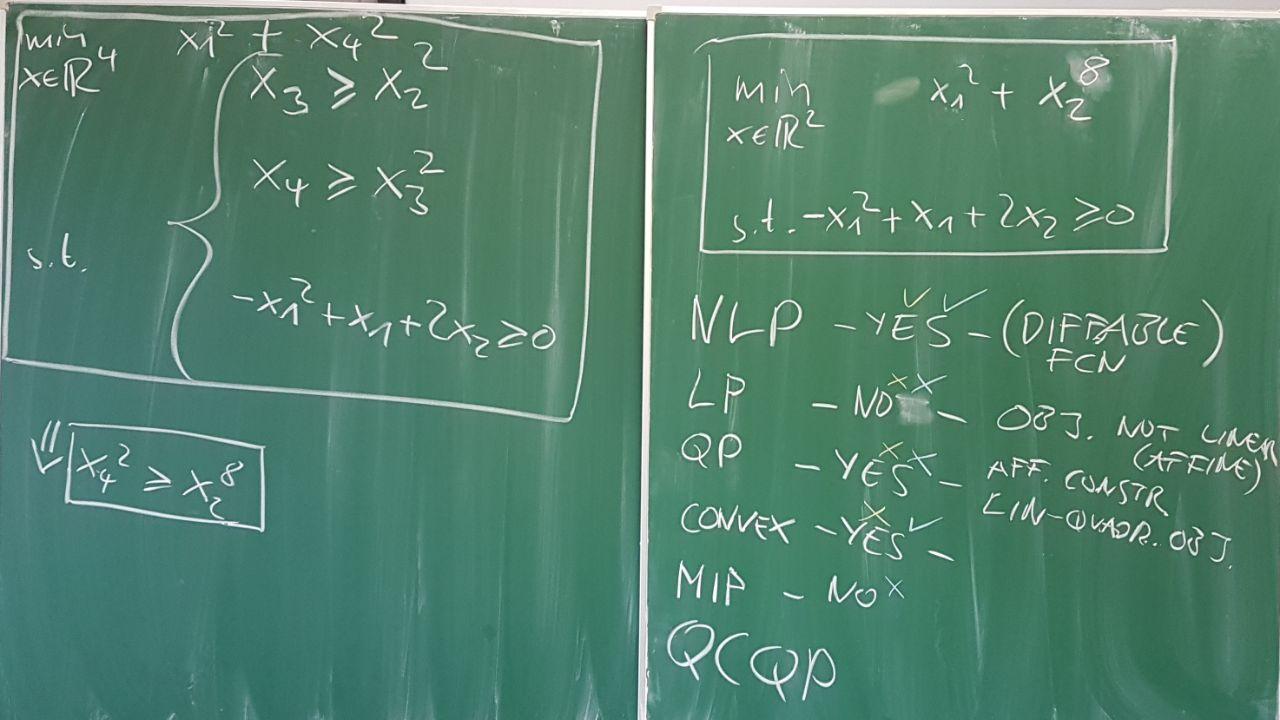 min x₁² + x₄²
x∈ℝ⁴
x₃ ⩾ x₂²
x₄ ⩾ x₃²
s.t.
-x₁² + x₁ + 2x₂ ⩾ 0
⇓ x₄² ⩾ x₂⁸
min x₁² + x₂⁸
x∈ℝ²
s.t. -x₁² + x₁ + 2x₂ ⩾ 0
NLP - YES ✓ ✓ - (DIFFABLE)
FCN
LP - NO × × - OBJ. NOT LINEAR
(AFFINE)
QP - YES × × - AFF. CONSTR
LIN-QUADR. OBJ.
CONVEX - YES × ✓ -
MIP - NO ×
QCQP